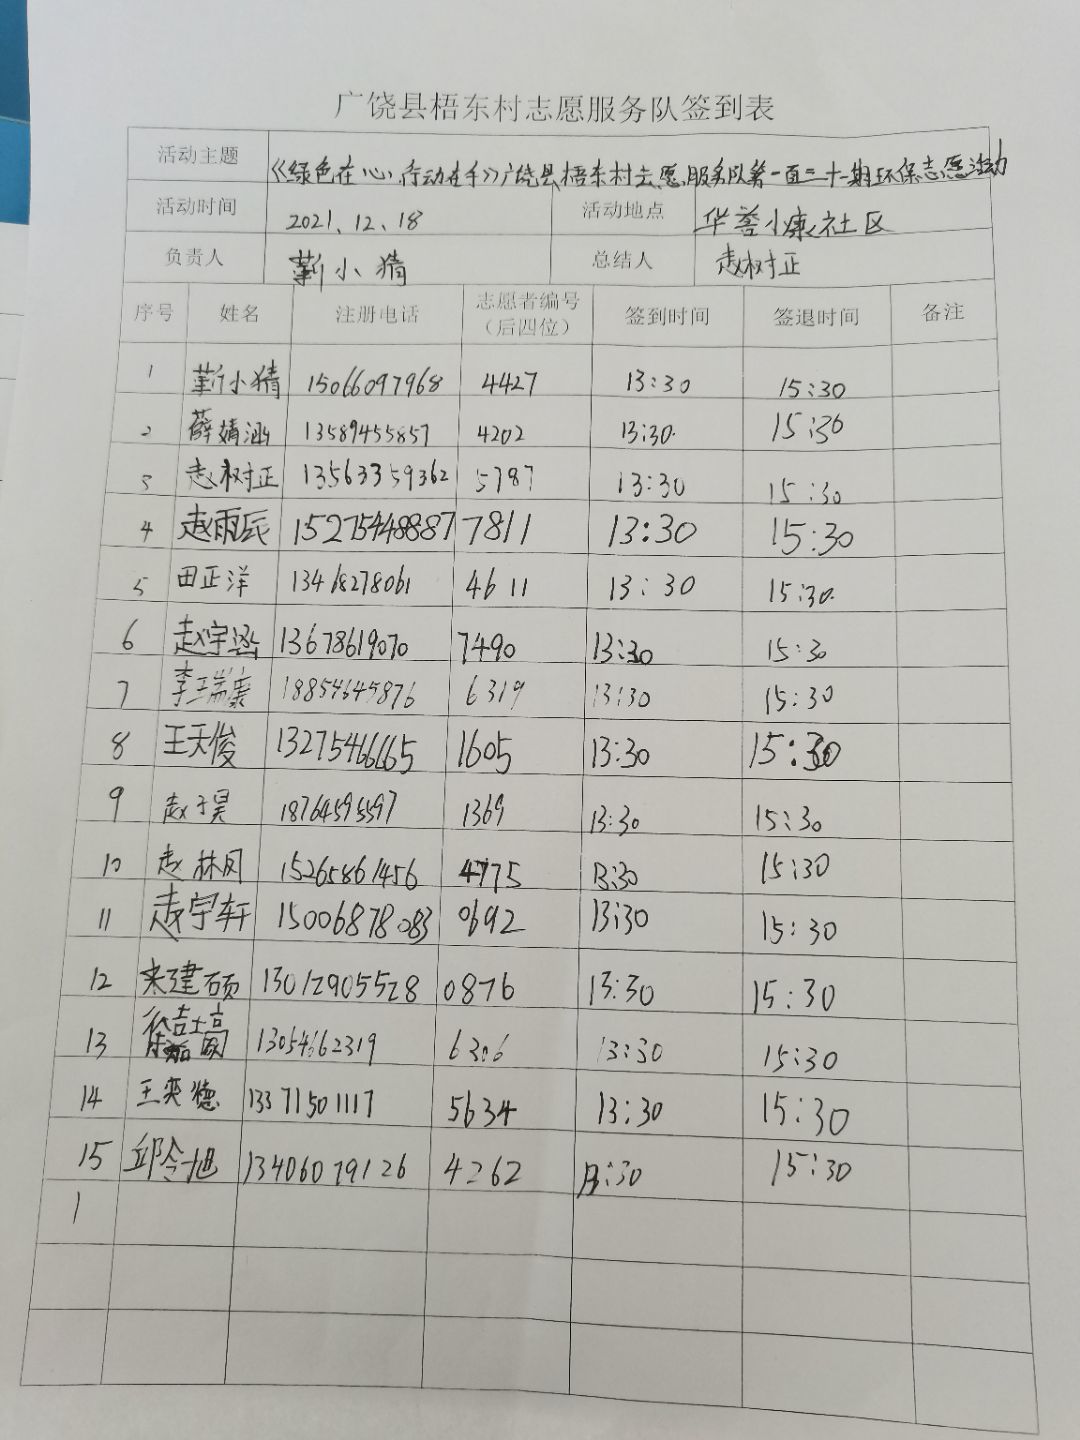 广饶县梧东村志愿服务队签到表
活动主题 《绿色在心,行动在手》广饶县梧东村志愿服务队第一百二十一期环保志愿活动
活动时间 2021.12.18 活动地点 华誉小康社区
负责人 靳小猜 总结人 赵树正
序号 姓名 注册电话 志愿者编号(后四位) 签到时间 签退时间 备注
1 靳小猜 15066097968 4427 13:30 15:30
2 薛婧涵 13589455857 4202 13:30. 15:30
3 赵树正 13563359362 5787 13:30 15:30
4 赵雨辰 15275448887 7811 13:30 15:30
5 田正洋 13418278061 4611 13:30 15:30.
6 赵宇涵 13678619070 7490 13:30 15:30
7 李瑞康 18854645876 6319 13:30 15:30
8 王天俊 13275466665 1605 13:30 15:30
9 赵子昊 18764595597 1369 13:30 15:30
10 赵林风 15265861456 4775 13:30 15:30
11 赵宇轩 15006878083 0692 13:30 15:30
12 来建硕 13012905528 0876 13:30 15:30
13 13054662319 6306 13:30 15:30
14 王奕德 13371501117 5634 13:30 15:30
15 邱令旭 13406079126 4262 13:30 15:30
1